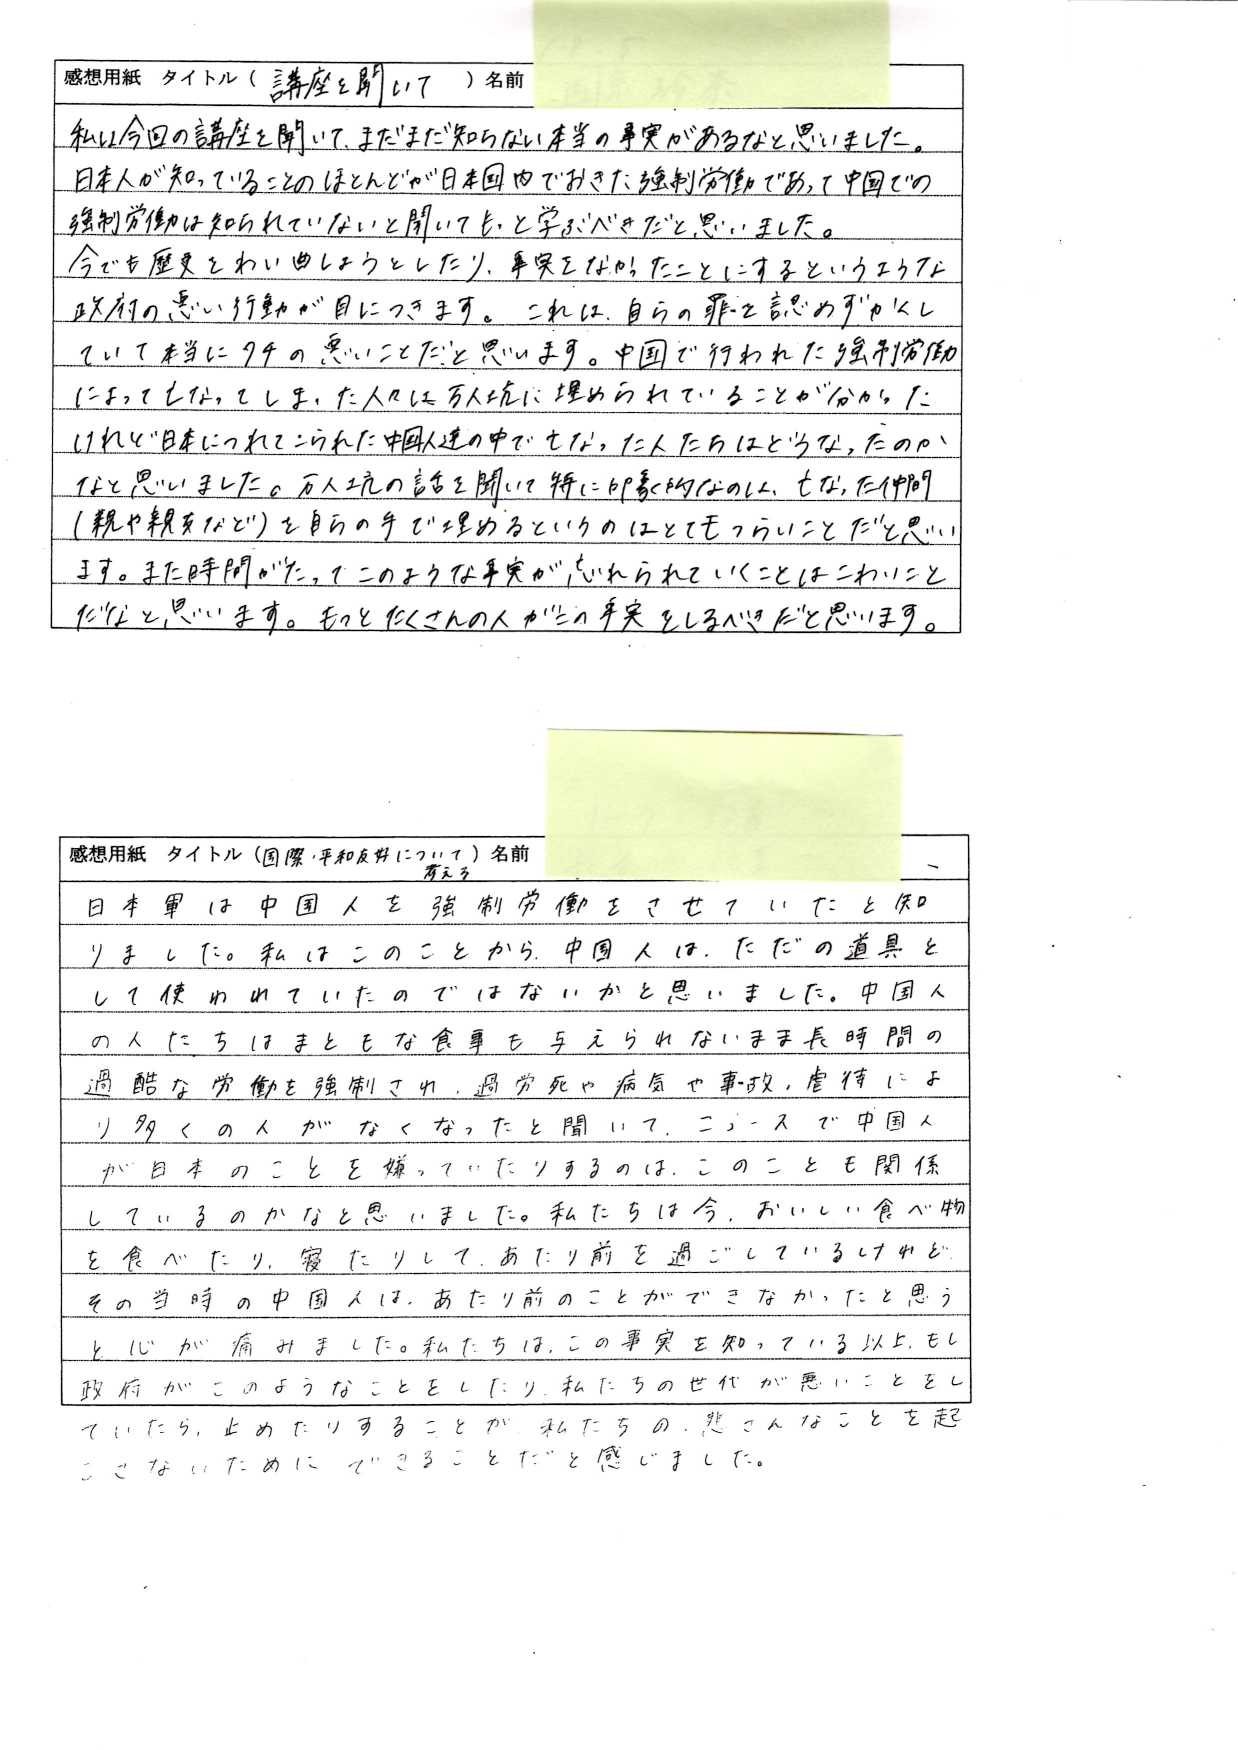 感想用紙 タイトル（ 講座を聞いて ）名前
私は今回の講座を聞いて、まだまだ知らない本当の事実があるなと思いました。
日本人が知っていることのほとんどが日本国内でおきた強制労働であって中国での
強制労働は知られていないと聞いてもっと学ぶべきだと思いました。
今でも歴史をわい曲しようとしたり、事実をなかったことにするというような
政府の悪い行動が目につきます。これは、自らの罪を認めずかくし
ていて本当にタチの悪いことだと思います。中国で行われた強制労働
によって亡なってしまった人々は万人坑に埋められていることが分かった
けれど日本につれてこられた中国人達の中で亡なった人たちはどうなったのか
なと思いました。万人坑の話を聞いて特に印象的なのは、亡なった仲間
（親や親友など）を自らの手で埋めるというのはとてもつらいことだと思い
ます。また時間がたってこのような事実が忘れられていくことはこわいこと
だなと思います。もっとたくさんの人がこの事実をしるべきだと思います。
感想用紙 タイトル（国際・平和友好について）名前
考える
日本軍は中国人を強制労働をさせていたと知
りました。私はこのことから、中国人は、ただの道具と
して使われていたのではないかと思いました。中国人
の人たちはまともな食事も与えられないまま長時間の
過酷な労働を強制され、過労死や病気や事故、虐待によ
り多くの人がなくなったと聞いて、ニュースで中国人
が日本のことを嫌っていたりするのは、このことも関係
しているのかなと思いました。私たちは今、おいしい食べ物
を食べたり、寝たりして、あたり前を過ごしているけれど、
その当時の中国人は、あたり前のことができなかったと思う
と心が痛みました。私たちは、この事実を知っている以上、もし
政府がこのようなことをしたり、私たちの世代が悪いことをし
ていたら、止めたりすることが、私たちの、悲さんなことを起
こさないためにできることだと感じました。